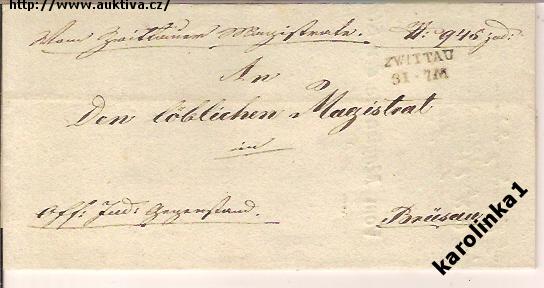 http://www.auktiva.cz/
Vom Zwittauer Magistrate. N: 945 jud:
ZWITTAU
31·7M
An
Den löblichen Magistrat
in
Off: Jud: Gegenstand. Brüsau.
karolinka1